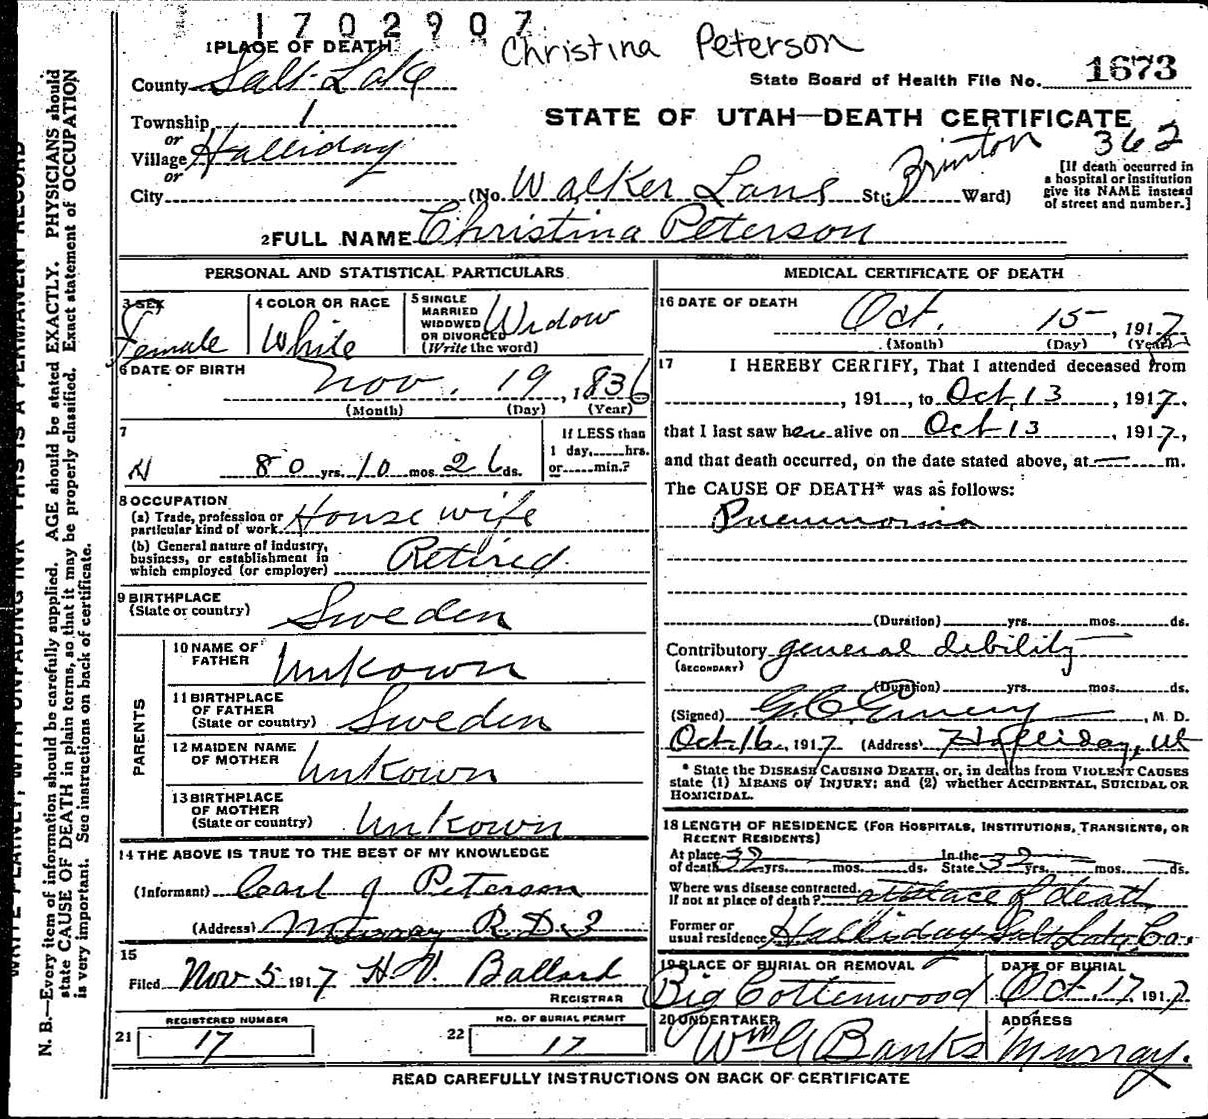 1702907
Christina Peterson
1 PLACE OF DEATH
County Salt Lake
State Board of Health File No. 1673
Township 1
STATE OF UTAH—DEATH CERTIFICATE
or
Village Halliday
Brinton 362
or
City (No. Walker Lane St; Ward)
[If death occurred in a hospital or institution give its NAME instead of street and number.]
2 FULL NAME Christina Peterson
PERSONAL AND STATISTICAL PARTICULARS
3 SEX Female
4 COLOR OR RACE White
5 SINGLE MARRIED WIDOWED OR DIVORCED (Write the word) Widow
6 DATE OF BIRTH Nov. 19, 1836
(Month) (Day) (Year)
7
80 yrs. 10 mos. 26 ds.
If LESS than 1 day, hrs. or min.?
8 OCCUPATION
(a) Trade, profession or particular kind of work Housewife
(b) General nature of industry, business, or establishment in which employed (or employer) Retired.
9 BIRTHPLACE
(State or country) Sweden
PARENTS
10 NAME OF FATHER Unkown
11 BIRTHPLACE OF FATHER (State or country) Sweden
12 MAIDEN NAME OF MOTHER Unkown
13 BIRTHPLACE OF MOTHER (State or country) Unkown
14 THE ABOVE IS TRUE TO THE BEST OF MY KNOWLEDGE
(Informant) Carl J Peterson
(Address) Murray R.D. 3
15
Filed Nov 5 1917 H.V. Ballard
REGISTRAR
21 REGISTERED NUMBER 17
22 NO. OF BURIAL PERMIT 17
MEDICAL CERTIFICATE OF DEATH
16 DATE OF DEATH
Oct. 15, 1917
(Month) (Day) (Year)
17 I HEREBY CERTIFY, That I attended deceased from
, 191 , to Oct, 13, 1917,
that I last saw her alive on Oct 13, 1917,
and that death occurred, on the date stated above, at — m.
The CAUSE OF DEATH* was as follows:
Pneumonia
(Duration) yrs. mos. ds.
Contributory general debility
(SECONDARY)
(Duration) yrs. mos. ds.
(Signed) , M. D.
Oct. 16, 1917 (Address) Halliday, Ut
* State the DISEASE CAUSING DEATH, or, in deaths from VIOLENT CAUSES
state (1) MEANS OF INJURY; and (2) whether ACCIDENTAL, SUICIDAL OR
HOMICIDAL.
18 LENGTH OF RESIDENCE (FOR HOSPITALS, INSTITUTIONS, TRANSIENTS, OR
RECENT RESIDENTS)
At place of death yrs. mos. ds. In the State yrs. mos. ds.
Where was disease contracted, If not at place of death? at place of death
Former or usual residence Halliday Salt Lake Co.
19 PLACE OF BURIAL OR REMOVAL Big Cottenwood
DATE OF BURIAL Oct. 17, 1917
20 UNDERTAKER Wm G Banks
ADDRESS Murray.
READ CAREFULLY INSTRUCTIONS ON BACK OF CERTIFICATE
WRITE PLAINLY, WITH UNFADING INK—THIS IS A PERMANENT RECORD
N. B.—Every item of information should be carefully supplied. AGE should be stated EXACTLY. PHYSICIANS should
state CAUSE OF DEATH in plain terms, so that it may be properly classified. Exact statement of OCCUPATION
is very important. See instructions on back of certificate.